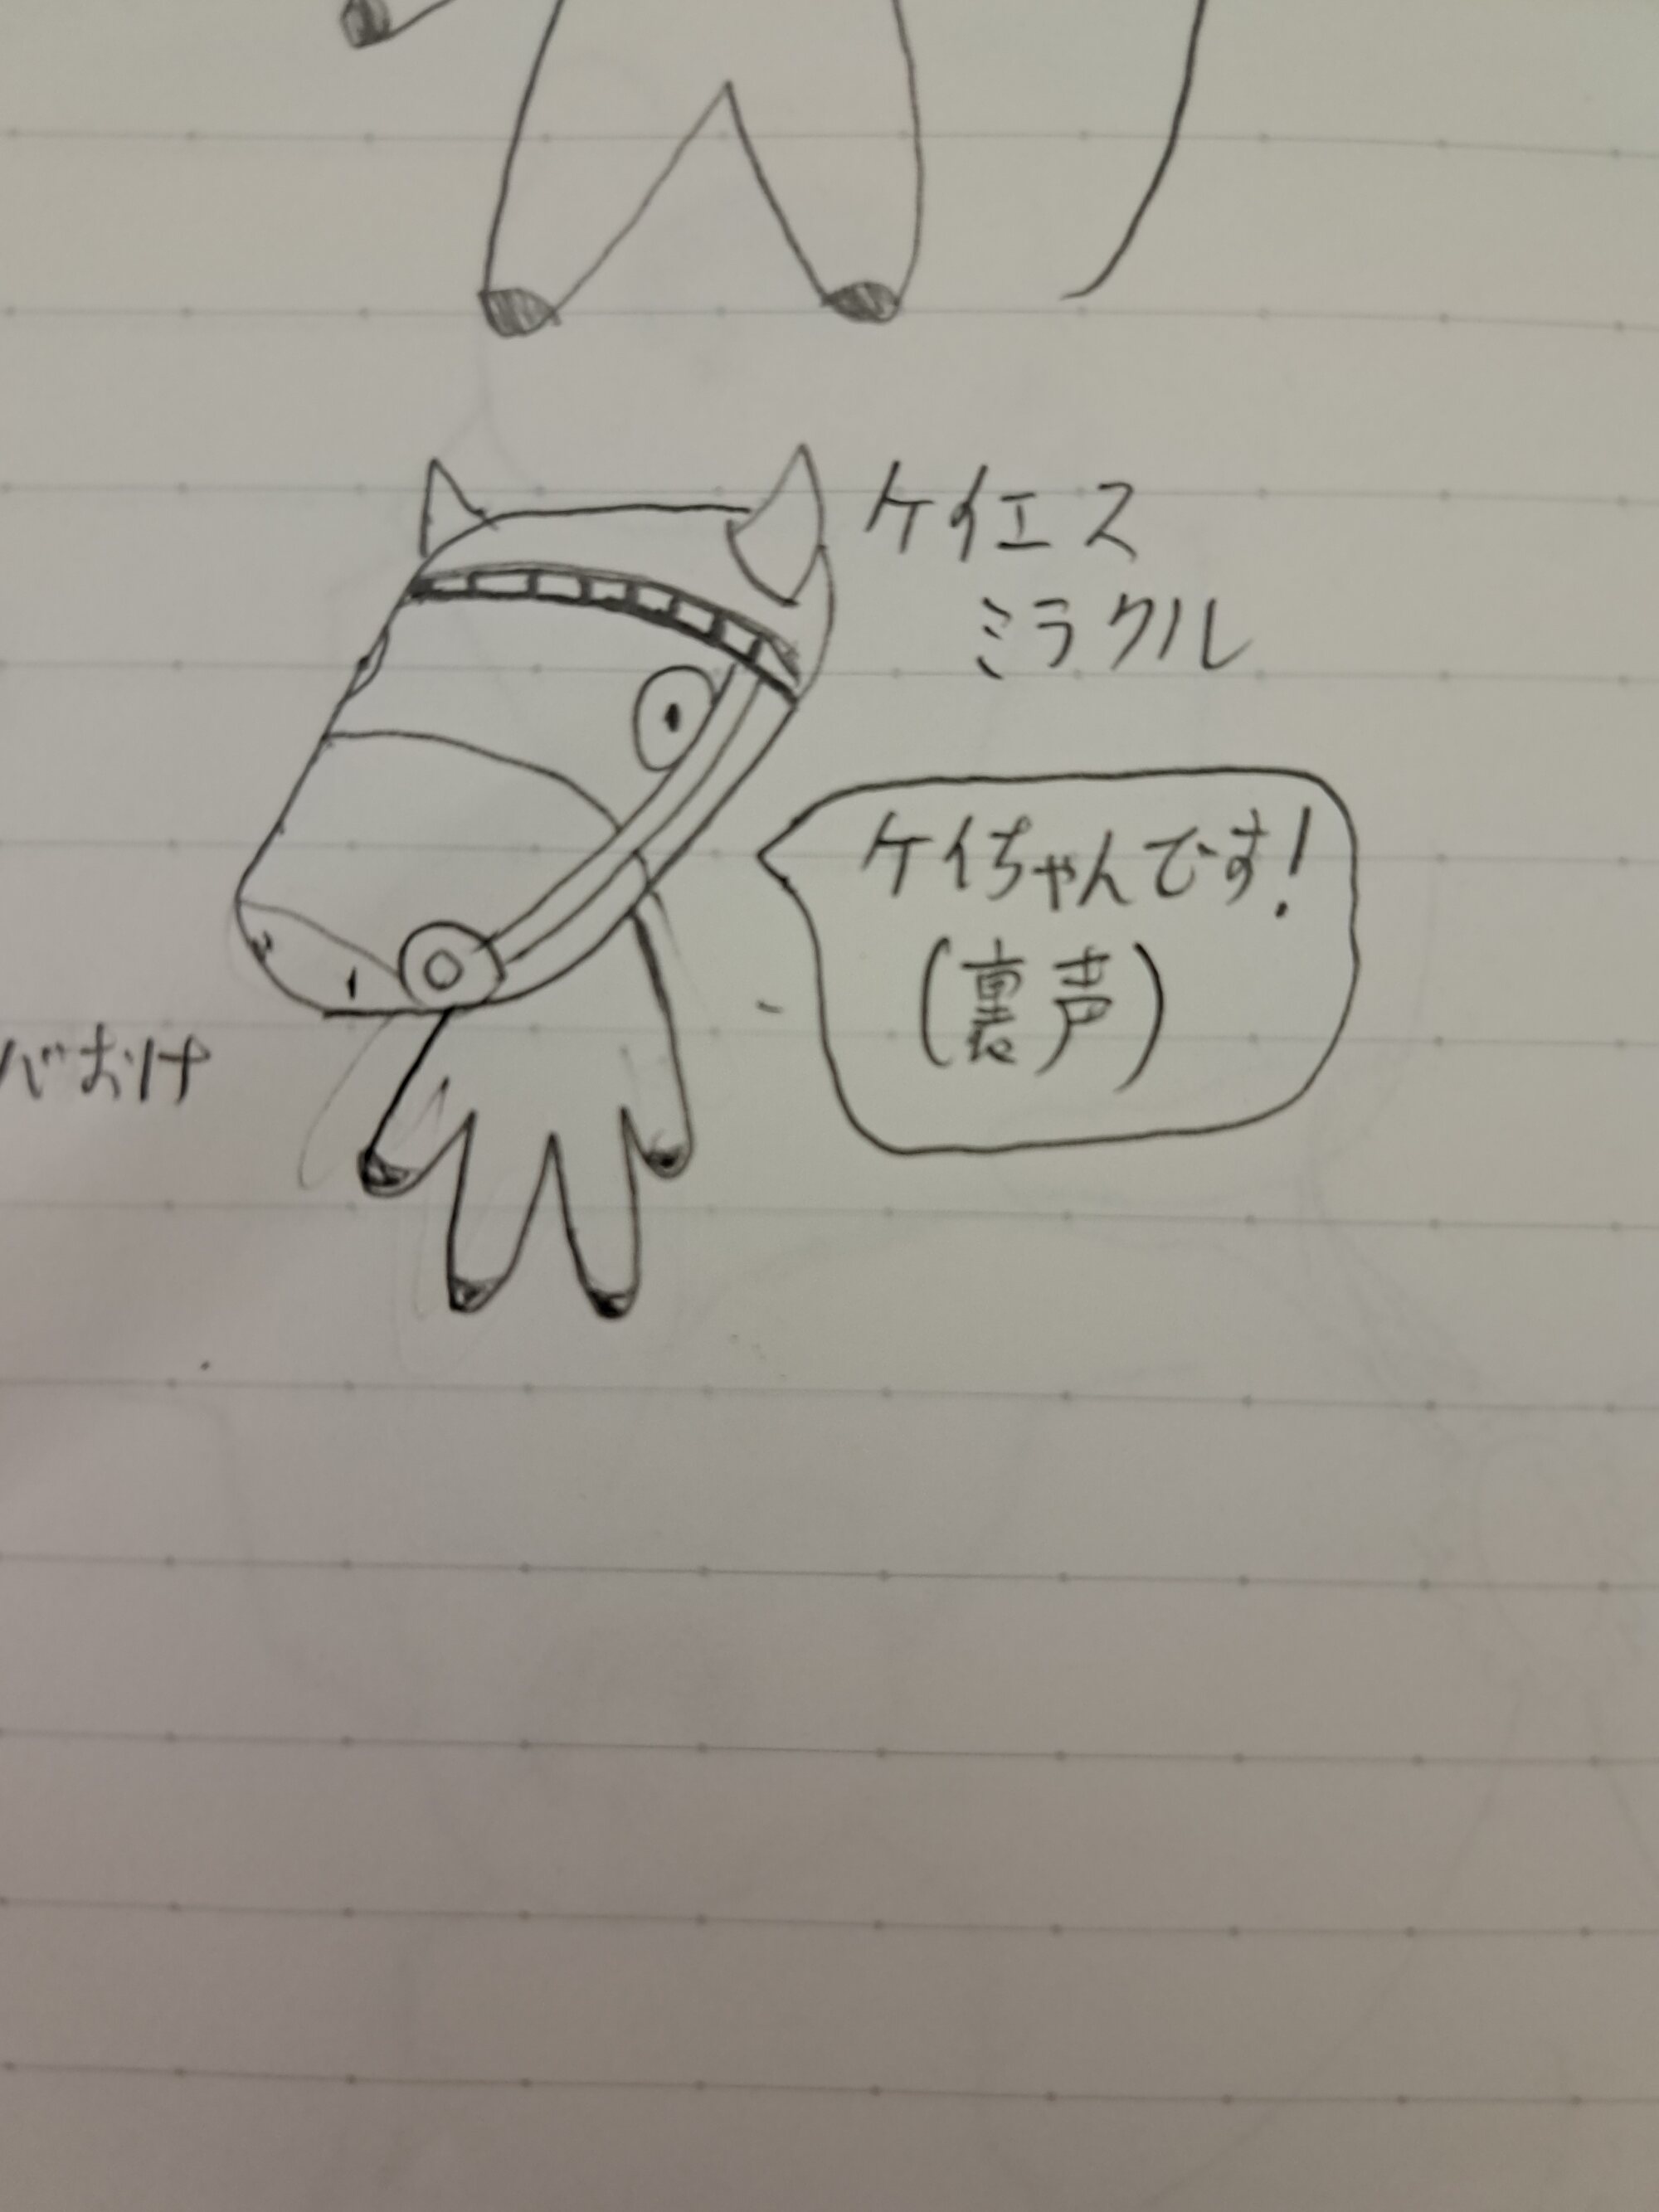 ケイエス
ミラクル
ケイちゃんです!
(裏声)
バおけ